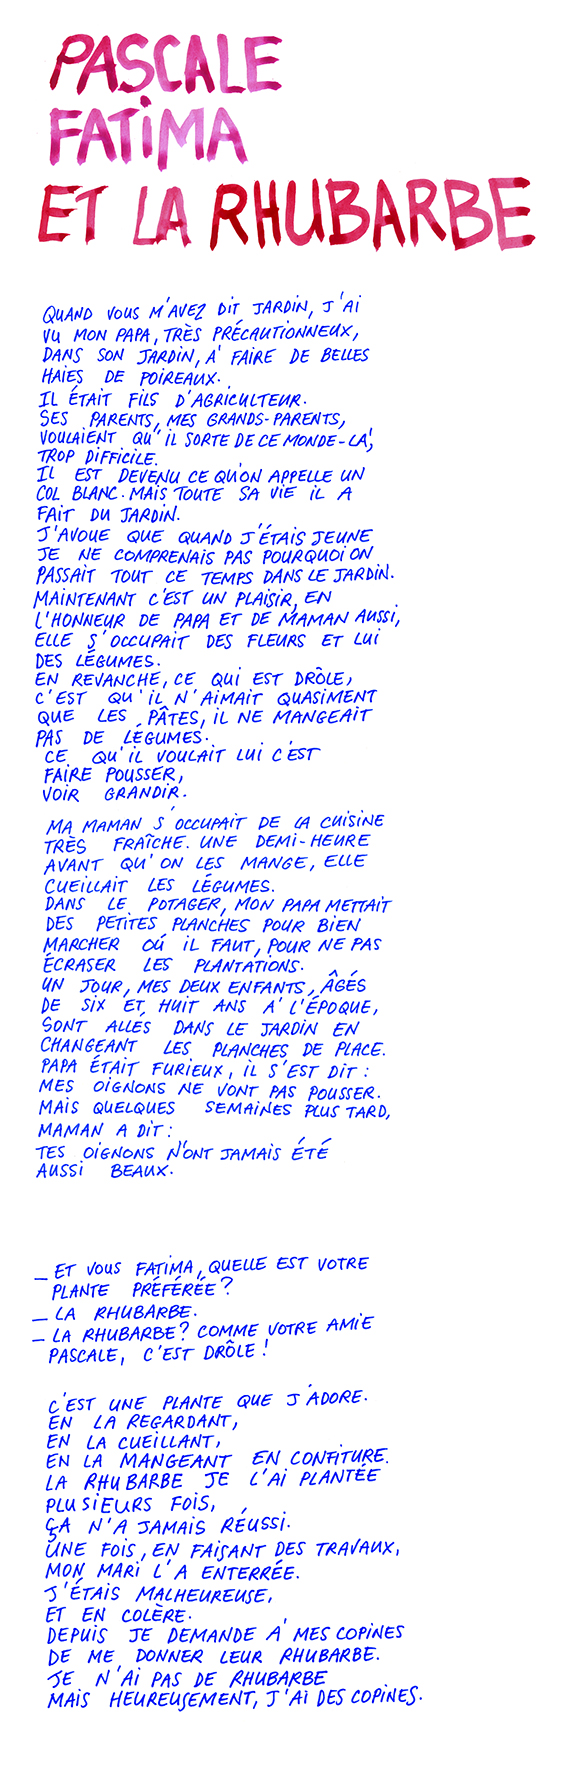 PASCALE
FATIMA
ET LA RHUBARBE
QUAND VOUS M'AVEZ DIT JARDIN, J'AI
VU MON PAPA, TRÈS PRÉCAUTIONNEUX,
DANS SON JARDIN, À FAIRE DE BELLES
HAIES DE POIREAUX.
IL ÉTAIT FILS D'AGRICULTEUR.
SES PARENTS, MES GRANDS-PARENTS,
VOULAIENT QU'IL SORTE DE CE MONDE-LÀ,
TROP DIFFICILE.
IL EST DEVENU CE QU'ON APPELLE UN
COL BLANC. MAIS TOUTE SA VIE IL A
FAIT DU JARDIN.
J'AVOUE QUE QUAND J'ÉTAIS JEUNE
JE NE COMPRENAIS PAS POURQUOI ON
PASSAIT TOUT CE TEMPS DANS LE JARDIN.
MAINTENANT C'EST UN PLAISIR, EN
L'HONNEUR DE PAPA ET DE MAMAN AUSSI,
ELLE S'OCCUPAIT DES FLEURS ET LUI
DES LÉGUMES.
EN REVANCHE, CE QUI EST DRÔLE,
C'EST QU'IL N'AIMAIT QUASIMENT
QUE LES PÂTES, IL NE MANGEAIT
PAS DE LÉGUMES.
CE QU'IL VOULAIT LUI C'EST
FAIRE POUSSER,
VOIR GRANDIR.
MA MAMAN S'OCCUPAIT DE LA CUISINE
TRÈS FRAÎCHE. UNE DEMI-HEURE
AVANT QU'ON LES MANGE, ELLE
CUEILLAIT LES LÉGUMES.
DANS LE POTAGER, MON PAPA METTAIT
DES PETITES PLANCHES POUR BIEN
MARCHER OÙ IL FAUT, POUR NE PAS
ÉCRASER LES PLANTATIONS.
UN JOUR, MES DEUX ENFANTS, ÂGÉS
DE SIX ET HUIT ANS À L'ÉPOQUE,
SONT ALLÉS DANS LE JARDIN EN
CHANGEANT LES PLANCHES DE PLACE.
PAPA ÉTAIT FURIEUX, IL S'EST DIT :
MES OIGNONS NE VONT PAS POUSSER.
MAIS QUELQUES SEMAINES PLUS TARD,
MAMAN A DIT :
TES OIGNONS N'ONT JAMAIS ÉTÉ
AUSSI BEAUX.
_ ET VOUS FATIMA, QUELLE EST VOTRE
PLANTE PRÉFÉRÉE ?
_ LA RHUBARBE.
_ LA RHUBARBE ? COMME VOTRE AMIE
PASCALE, C'EST DRÔLE !
C'EST UNE PLANTE QUE J'ADORE.
EN LA REGARDANT,
EN LA CUEILLANT,
EN LA MANGEANT EN CONFITURE.
LA RHUBARBE JE L'AI PLANTÉE
PLUSIEURS FOIS,
ÇA N'A JAMAIS RÉUSSI.
UNE FOIS, EN FAISANT DES TRAVAUX,
MON MARI L'A ENTERRÉE.
J'ÉTAIS MALHEUREUSE,
ET EN COLÈRE.
DEPUIS JE DEMANDE À MES COPINES
DE ME DONNER LEUR RHUBARBE.
JE N'AI PAS DE RHUBARBE
MAIS HEUREUSEMENT, J'AI DES COPINES.